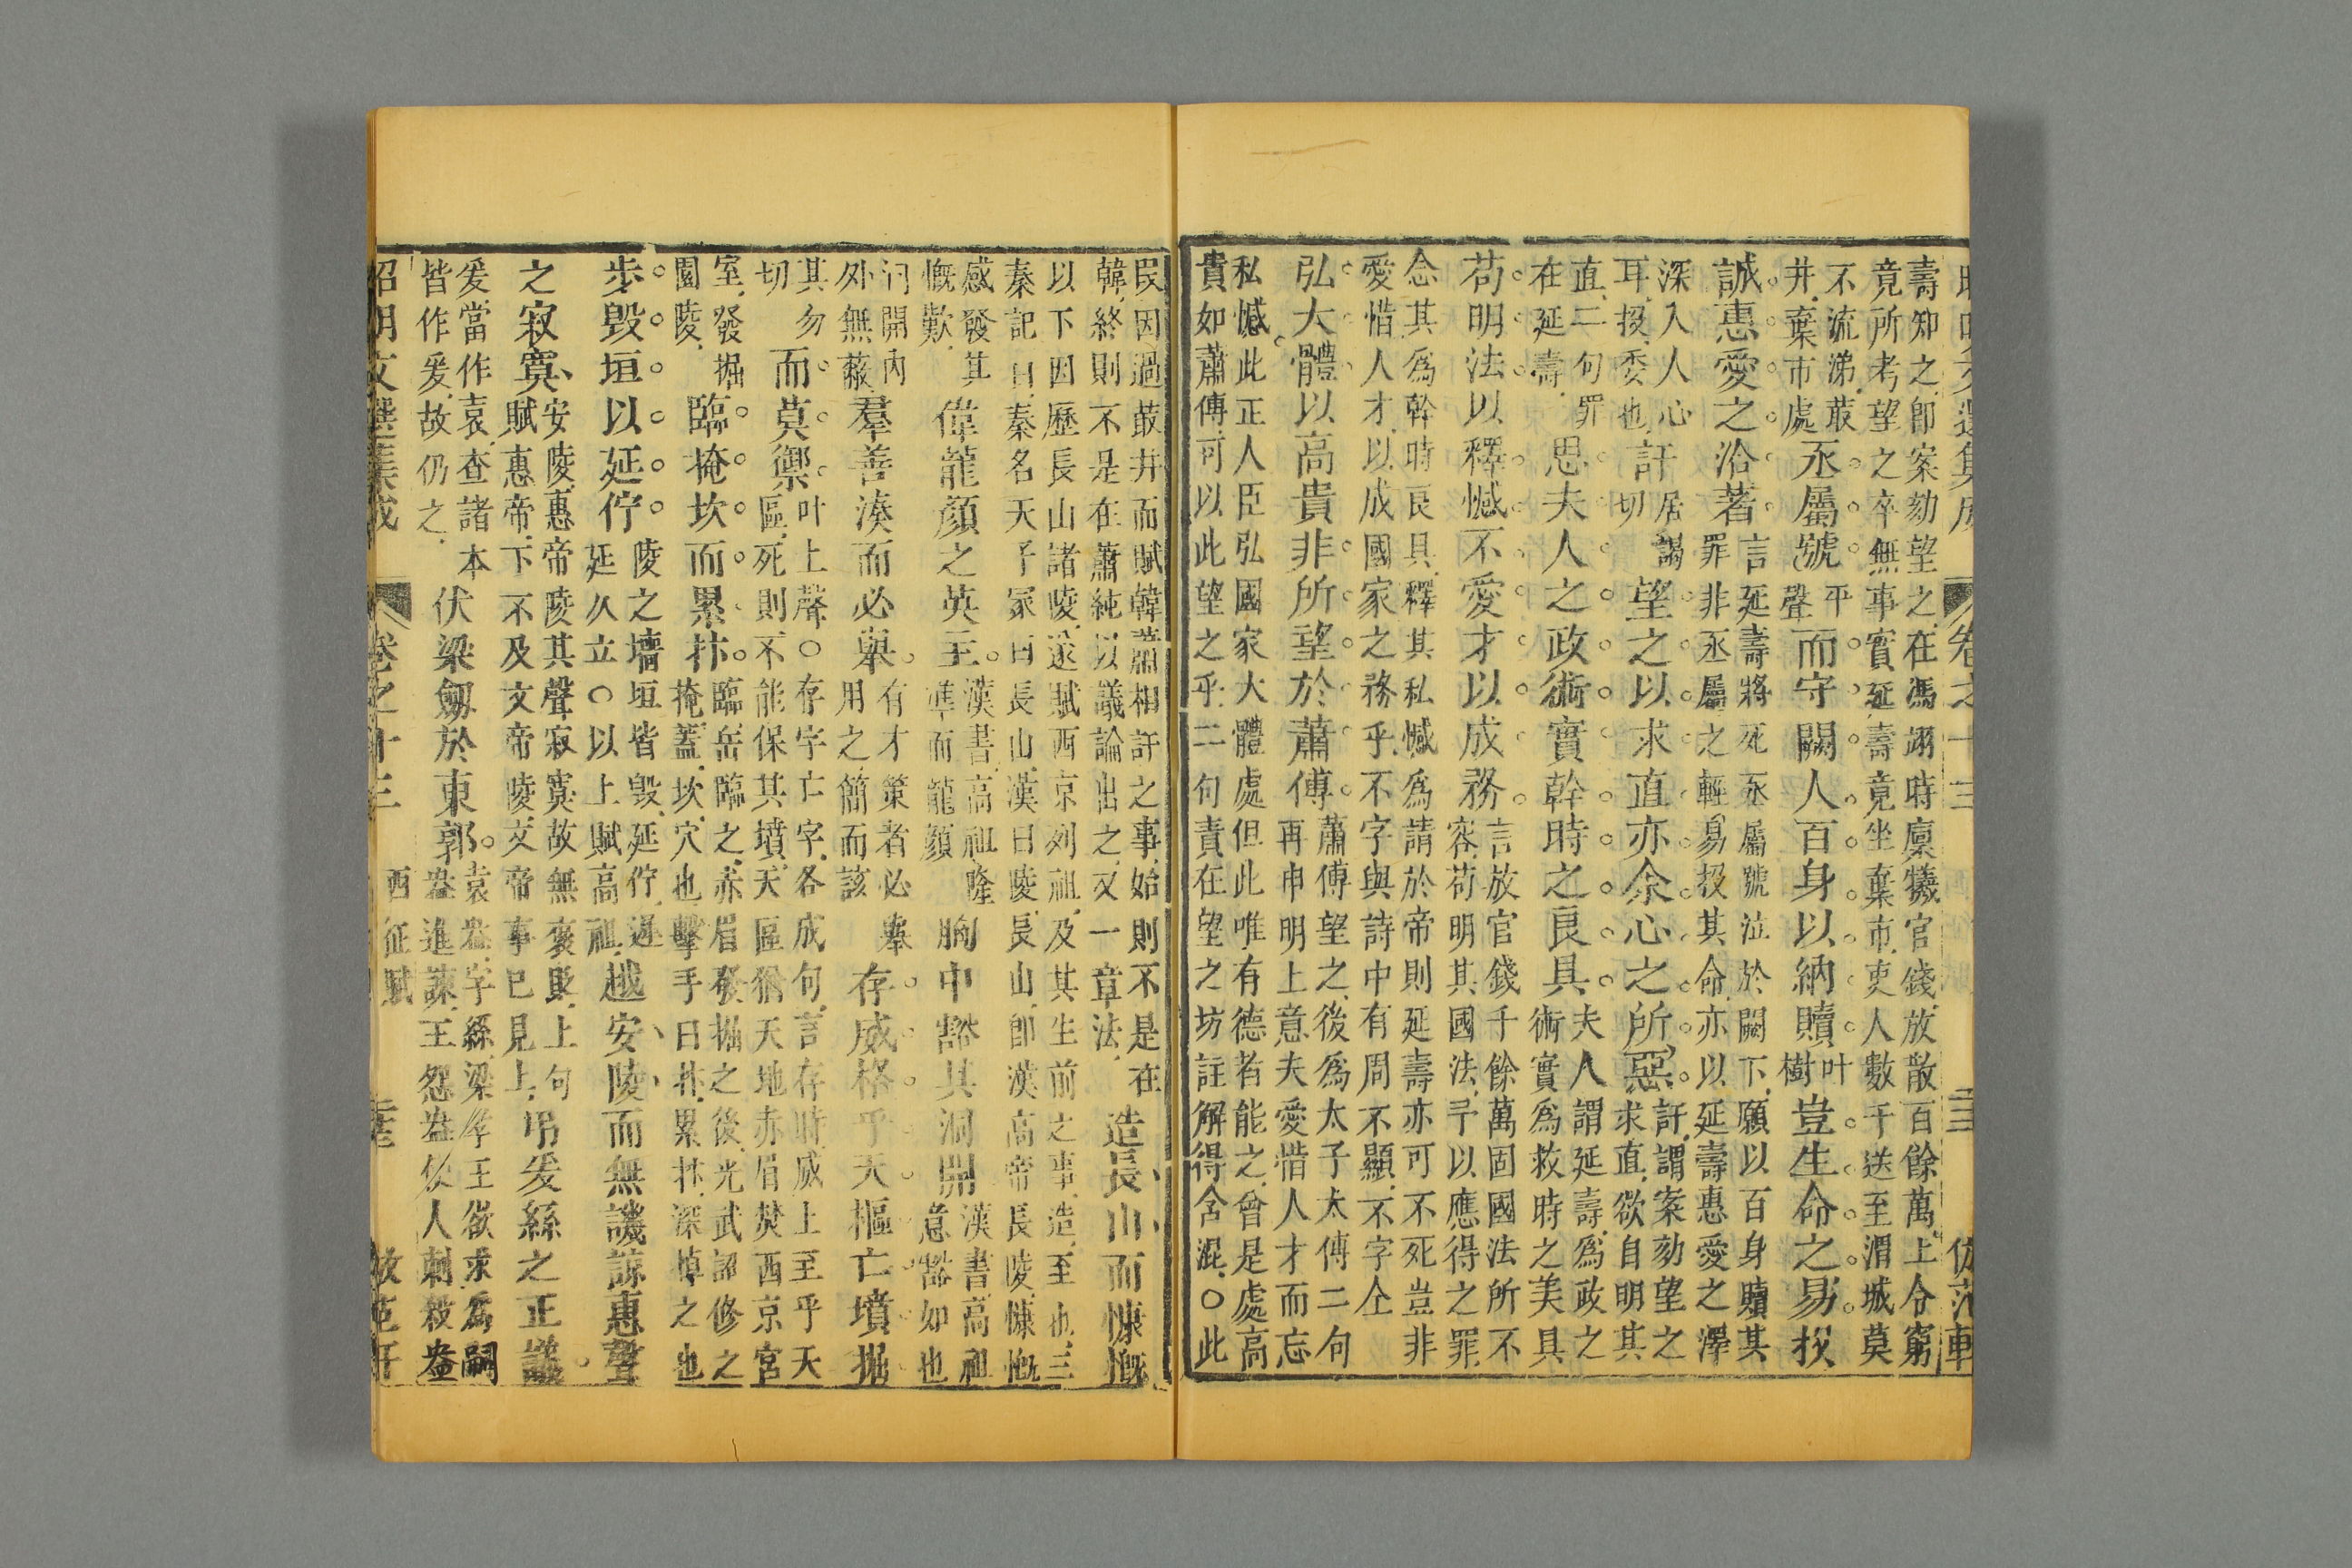 壽知之卽案劾望之在馮翊時廩犧官錢放散百餘萬上令窮
竟所考望之卒無事實延壽竟坐棄市吏人數千送至渭城莫
不流涕叢
井棄市處
丞屬號
平
聲
而守闕人百身以納贖
叶
樹
豈生命之易投
誠惠愛之洽著
言延壽將死丞屬號泣於闕下願以百身贖其
罪非丞屬之輕易投其命亦以延壽惠愛之澤
深入人心
耳投委也
訐
居謁
切
望之以求直亦余心之所惡
訐謂案劾望之
求直欲自明其
直二句罪
在延壽
思夫人之政術實幹時之良具
夫人謂延壽爲政之
術實爲救時之美具
苟明法以釋憾不愛才以成務
言放官錢千餘萬固國法所不
容苟明其國法予以應得之罪
念其爲幹時良具釋其私憾爲請於帝則延壽亦可不死豈非
愛惜人才以成國家之務乎不字與詩中有周不顯不字仝
弘大體以高貴非所望於蕭傅
蕭傅望之後爲太子太傅二句
再申明上意夫愛惜人才而忘
私憾此正人臣弘國家大體處但此唯有德者能之曾是處高
貴如蕭傅可以此望之乎二句責在望之坊註解得含混○此
卷之十三
民因過叢井而賦韓蕭相訐之事始則不是在
韓終則不是在蕭純以議論出之又一章法
造長山而慷慨
以下因歷長山諸陵遂賦西京列祖及其生前之事造至也三
秦記曰秦名天子冢曰長山漢曰陵長山卽漢高帝長陵慷慨
感發其
慨歎
偉龍顏之英主
漢書高祖隆
準而龍顏
胸中豁其洞開
漢書高祖
意豁如也
洞開內
外無蔽
羣善湊而必舉
有才策者必舉
用之簡而該
存威格乎天樞亡墳掘
其勿
切
而莫禦
叶上聲○存字亡字各成句言存時威上至乎天
區死則不能保其墳天區猶天地赤眉焚西京宮
室發掘
園陵
臨掩坎而累抃
臨岳臨之赤眉發掘之後光武詔修之
掩蓋坎穴也擊手曰抃累抃深悼之也
步毀垣以延佇
陵之墻垣皆毀延佇遲
延久立○以上賦高祖
越安陵而無譏諒惠聲
之寂寞
安陵惠帝陵其聲寂寞故無褒貶上句
賦惠帝下不及文帝陵文帝事已見上
弔爰絲之正議
爰當作袁查諸本
皆作爰故仍之
伏梁劒於東郭
袁盎字絲梁孝王欲求爲嗣
盎進諫王怨盎使人刺殺盎
昭明文選集成
卷之十三
西征賦